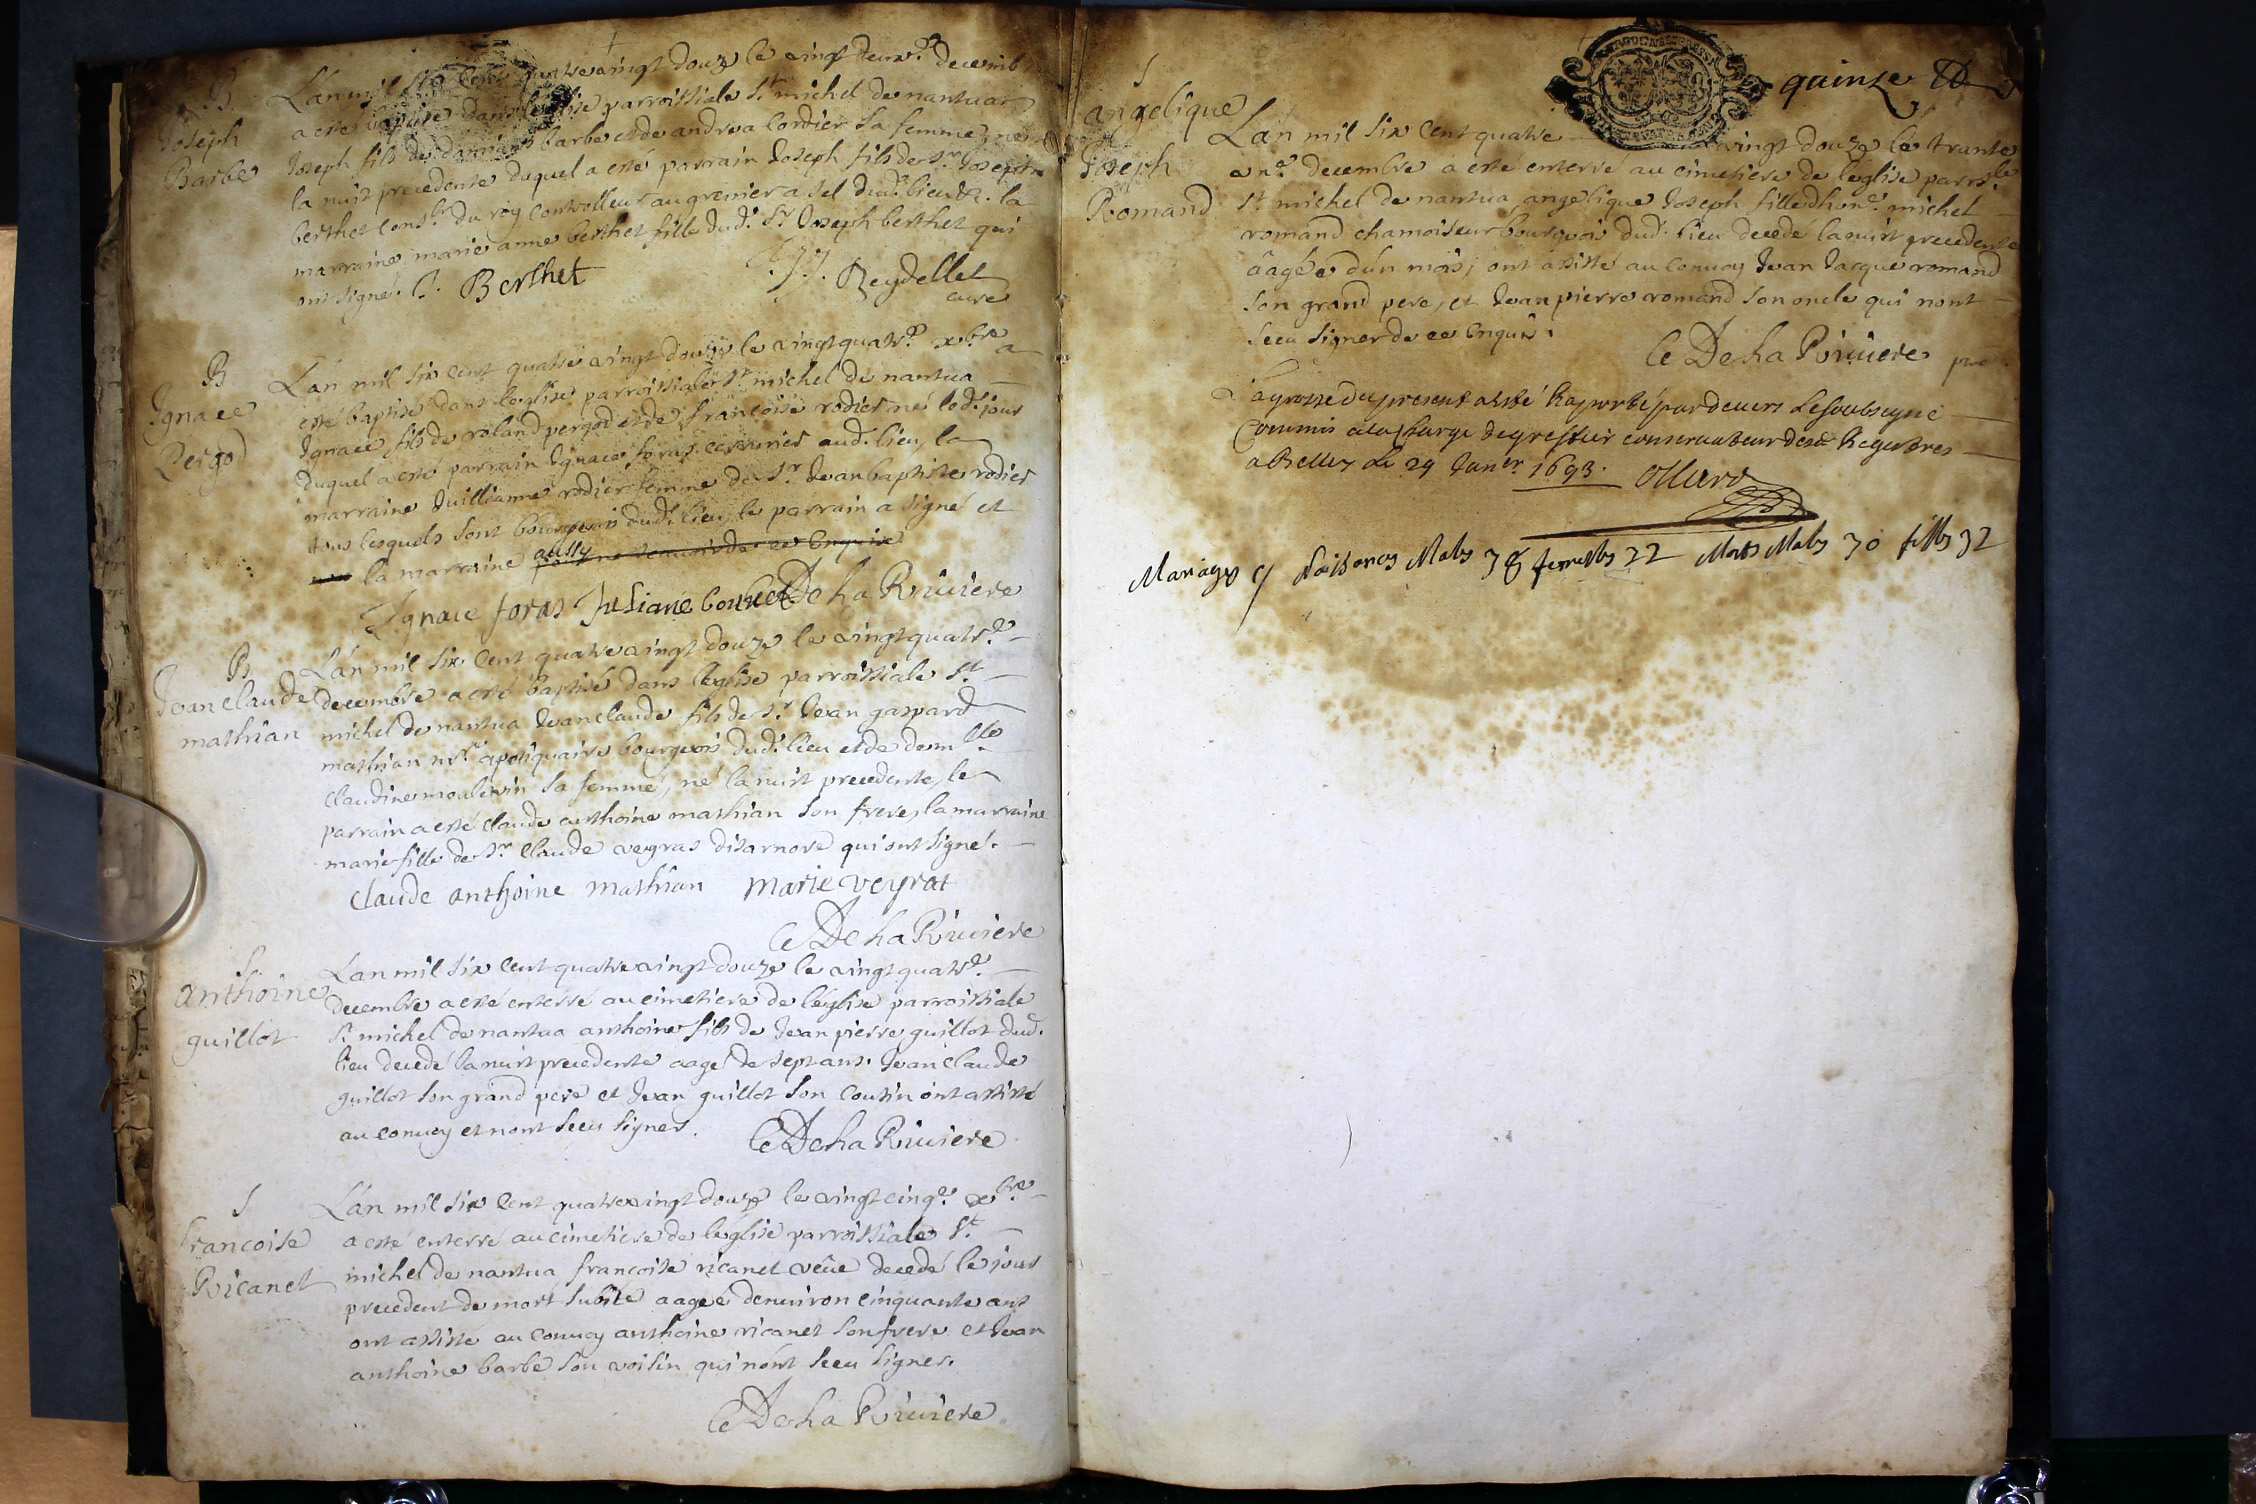 B
Joseph
Barbe
Lan mil six cent quatre vingt douze le vingt deux.e decemb
a esté baptisé dans leglise parroissiale St michel de nantua
Joseph fils de damian barbe et de andrea cordier sa femme, né
la nuit precedente duquel a esté parrain Joseph fils de Sr Joseph
berthet cons.er du roy controlleur au grenier a sel dud. lieu &c. la
marraine marie anne berthet fille dud. Sr Joseph berthet qui
ont signé. J. Berthet Reydellet
curé
B
Ignace
Pergod
Lan mil six cent quatre vingt douze le vingt quatr.e xbre a
esté baptisé dans leglise parroissiale St michel de nantua
Ignace fils de roland pergod et de françoise rodier né led. jour
duquel a esté parrain Ignace foras aud. lieu, la
marraine Juillianne rodier femme de Sr Jean baptiste rodier
tous lesquels sont bourgeois dud. lieu, le parrain a signé et
la marraine aussy
Ignace foras Julliane De La Riviere
B
Jean claude
mathian
Lan mil six cent quatre vingt douze le vingt quatr.e
decembre a esté baptisé dans leglise parroissiale St
michel de nantua Jean claude fils de Sr Jean gaspard
mathian mr apotiquaire bourgeois dud. lieu et de dem.lle
claudine moulinin sa femme, né la nuit precedente, le
parrain a esté claude anthoine mathian son frere, la marraine
marie fille de Sr claude veyras disarnore qui ont signé.
claude anthoine mathian Marie veyrat
C De La Riviere
S
anthoine
guillot
Lan mil six cent quatre vingt douze le vingt quatr.e
decembre a esté enterré au cimetiere de leglise parroissiale
St michel de nantua anthoine fils de Jean pierre guillot dud.
lieu decedé la nuit precedente aagé de sept ans. Jean claude
guillot son grand pere et Jean guillot son cousin ont assisté
au convoy et nont sceu signer. C De La Riviere
S
francoise
Ricanet
Lan mil six cent quatre vingt douze le vingt cinq.e xbre
a esté enterré au cimetiere de leglise parroissiale St
michel de nantua françoise ricanet veüe decedé le jour
precedent de mort subite aageé denviron cinquante ans
ont assisté au convoy anthoine ricanet son frere et Jean
anthoine barbe son voisin qui nont sceu signer.
C De La Riviere
quinze
S
angelique
Joseph
Romand
Lan mil six cent quatre vingt douze le trante
un.e decembre a esté enterré au cimetiere de leglise parr.le
St michel de nantua angelique Joseph fille dhon.e michel
romand chamoiseur bourgeois dud. lieu decedé la nuit precedente
aageé dun mois, ont assisté au convoy Jean Jacque romand
son grand pere, et Jean pierre romand son oncle qui nont
sceu signer de ce enquis.
C De La Riviere
La grosse du present a esté Raportée pardevers Le soubsigné
Commis a la charge de greffier conservateur desd. Registres
a Belley Le 29 Janer 1693. Ollard
Mariages 9 Naissances Males 38 femelles 22 Morts Males 30 filles 32